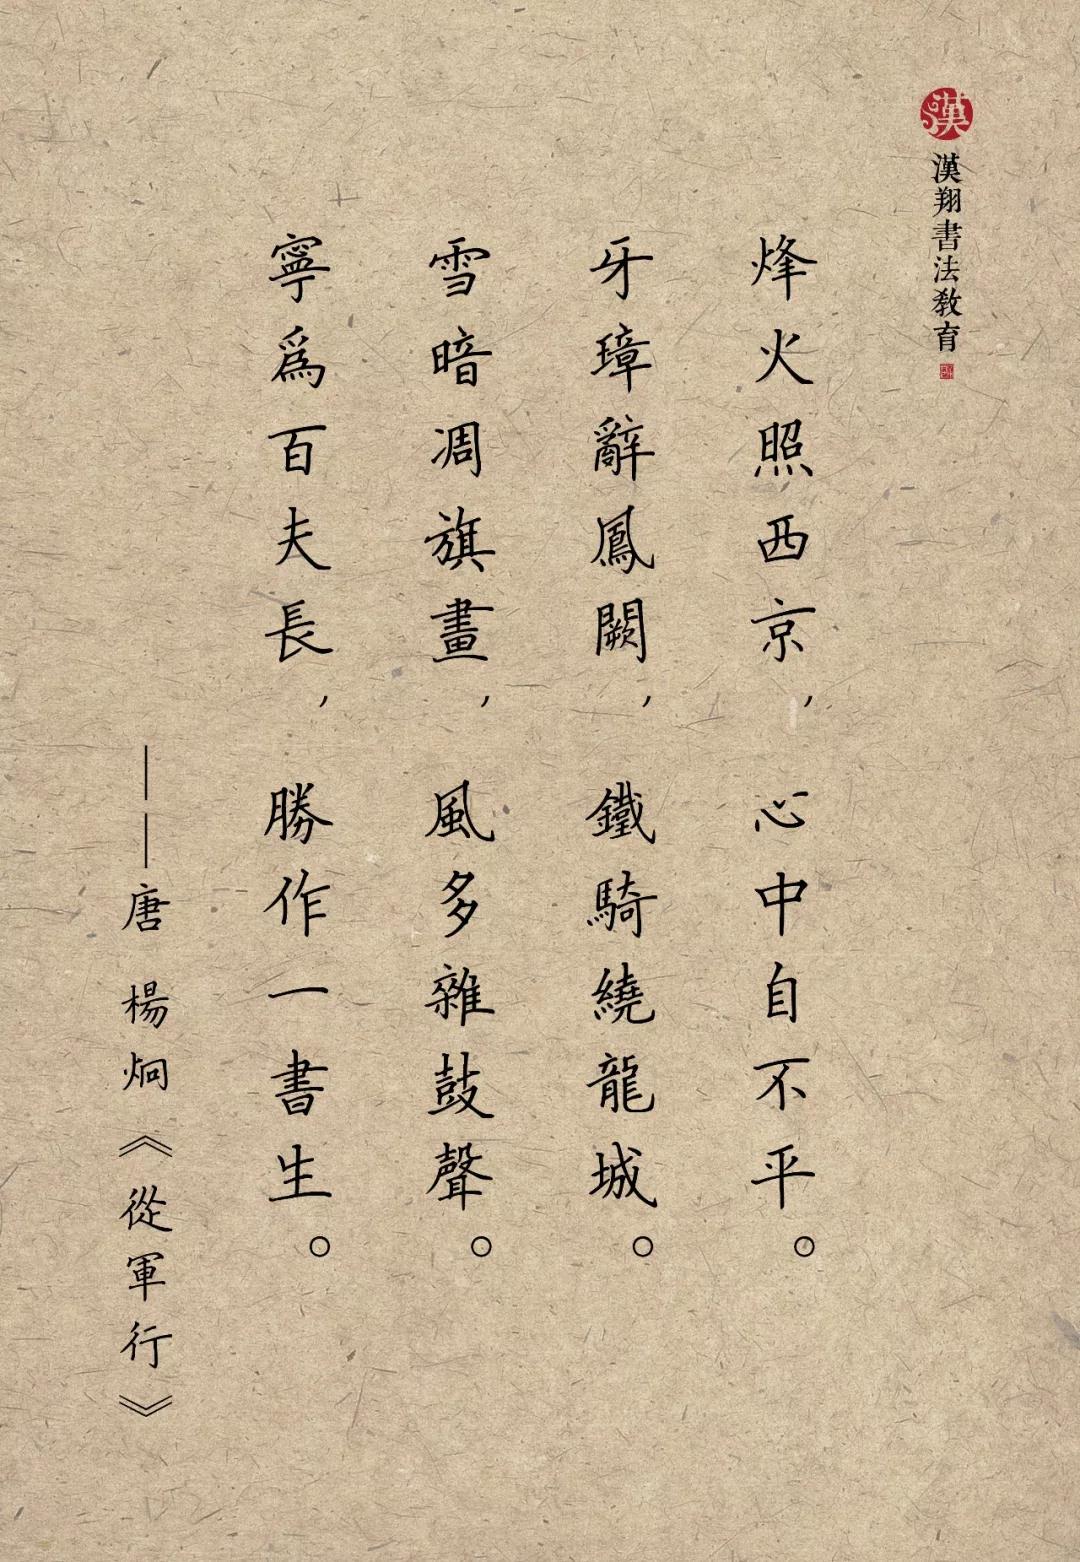 漢
漢翔書法教育
烽火照西京，心中自不平。
牙璋辭鳳闕，鐵騎繞龍城。
雪暗凋旗畫，風多雜鼓聲。
寧為百夫長，勝作一書生。
——唐 楊炯《從軍行》